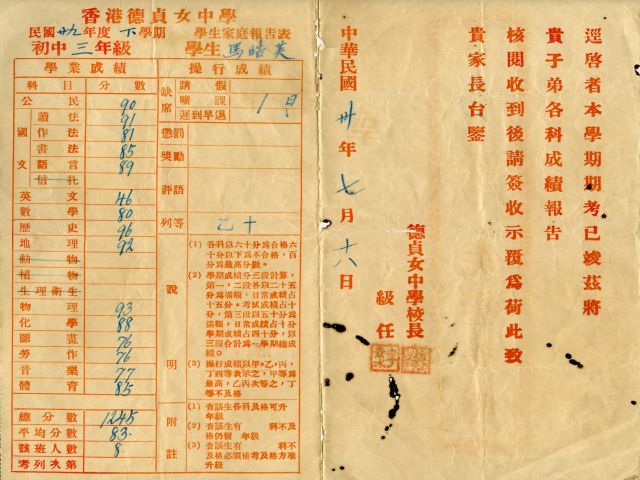 香港德貞女中學
民國廿九年度下學期 學生家庭報告表
初中三年級 學生馬皓英
學業成績
科目 分數
公民 90
國文
讀法 91
作法 81
書法 85
語言 89
信札
英文 46
數學 80
歷史 96
地理 92
動物
植物
生理衛生
物理 93
化學 88
圖畫 76
勞作 76
音樂 77
體育 85
總分數 1245
平均分數 83.
該班人數 8
考列次第
操行成績
缺席
請假
曠課
遲到早退
1日
懲罰
獎勵
評語
列等 乙十
說明
(1) 各科以六十分為合格六
十分以下為不合格,百
分為最高分數。
(2) 學期成績分三段計算,
第一,二段各以二十五
分為滿額,日常成績占
十五分。考試成績占十
分,第三段以五十分為
滿額,日常成績占十分
學期成績占四十分,以
三段合計為一學期總成
績。
(3) 操行成績以甲,乙,丙,
丁四等表示之,甲等為
最高,乙丙次等之,丁
等不及格
附註
(1) 查該生各科及格可升
年級
(2) 查該生有 科不及
格仍留 年級
(3) 查該生有 科不
及格必須補考及格方准
升級
逕啓者本學期期考已竣茲將
貴子弟各科成績報告
核閱收到後請簽收示覆為荷此致
貴家長台鑒
德貞女中學校長
級任
中華民國卅年七月十六日